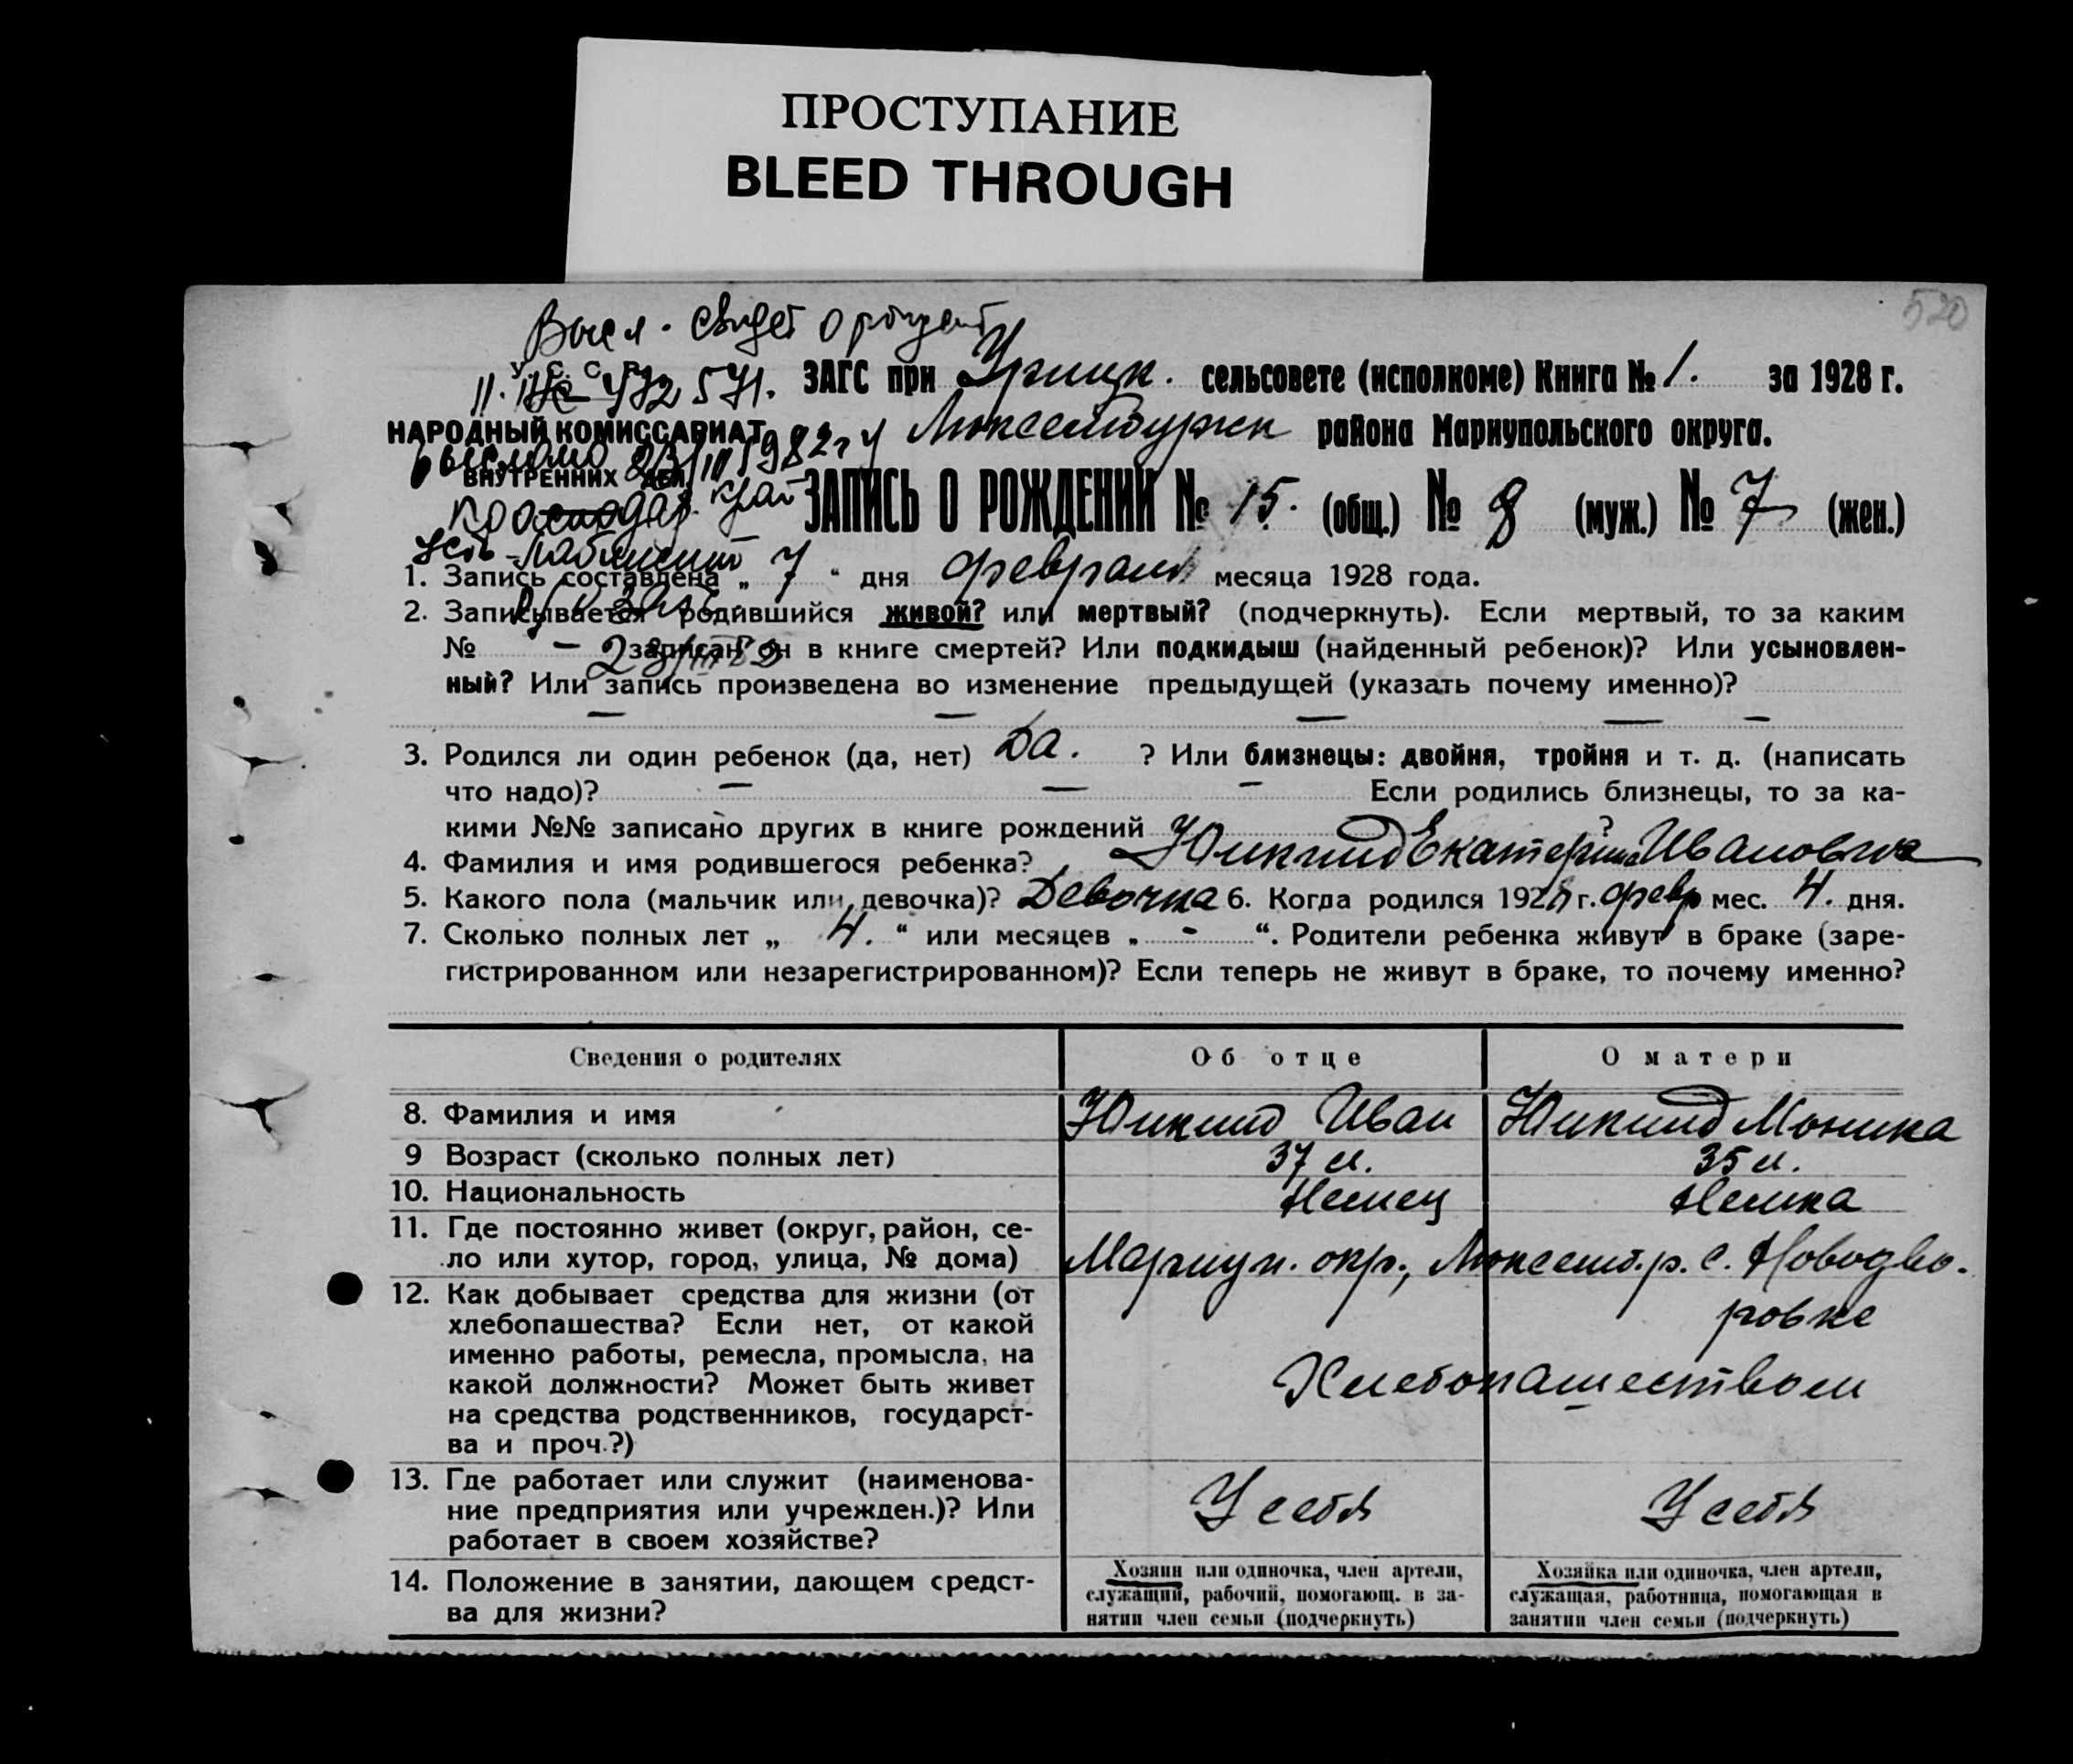 ПРОСТУПАНИЕ
BLEED THROUGH
520
свидет о
У. С. С. Р.
571.
ЗАГС при Урицк. сельсовете (исполкоме) Книга № 1. за 1928 г.
НАРОДНЫЙ КОМИССАРИАТ
Люксембургск района Мариупольского округа.
выслано 1982 г
ВНУТРЕННИХ ДЕЛ
край
ЗАПИСЬ О РОЖДЕНИИ № 15. (общ.) № 8 (муж.) № 7 (жен.)
Усть-Лабинский
1. Запись составлена „ 7 “ дня февраля месяца 1928 года.
2. Записывается родившийся живой? или мертвый? (подчеркнуть). Если мертвый, то за каким
№ — записан он в книге смертей? Или подкидыш (найденный ребенок)? Или усыновлен-
ный? Или запись произведена во изменение предыдущей (указать почему именно)?
— — — — —
3. Родился ли один ребенок (да, нет) Да. ? Или близнецы: двойня, тройня и т. д. (написать
что надо)? — — — Если родились близнецы, то за ка-
кими №№ записано других в книге рождений ?
4. Фамилия и имя родившегося ребенка? Юнкинд Екатерина Ивановна
5. Какого пола (мальчик или девочка)? Девочка 6. Когда родился 1928 г. февр мес. 4. дня.
7. Сколько полных лет „ 4. “ или месяцев „ - “. Родители ребенка живут в браке (заре-
гистрированном или незарегистрированном)? Если теперь не живут в браке, то почему именно?
Сведения о родителях Об отце О матери
8. Фамилия и имя Юнкинд Иван Юнкинд Моника
9 Возраст (сколько полных лет) 37 л. 35 л.
10. Национальность Немец Немка
11. Где постоянно живет (округ, район, се-
ло или хутор, город, улица, № дома) Мариуп. окр., Люксемб. р. с. Новодво-
ровке
12. Как добывает средства для жизни (от
хлебопашества? Если нет, от какой
именно работы, ремесла, промысла, на
какой должности? Может быть живет
на средства родственников, государст-
ва и проч.?)
Хлебопашеством
13. Где работает или служит (наименова-
ние предприятия или учрежден.)? Или
работает в своем хозяйстве?
У себя У себя
14. Положение в занятии, дающем средст-
ва для жизни?
Хозяин или одиночка, член артели,
служащий, рабочий, помогающ. в за-
нятии член семьи (подчеркнуть)
Хозяйка или одиночка, член артели,
служащая, работница, помогающая в
занятии член семьи (подчеркнуть)